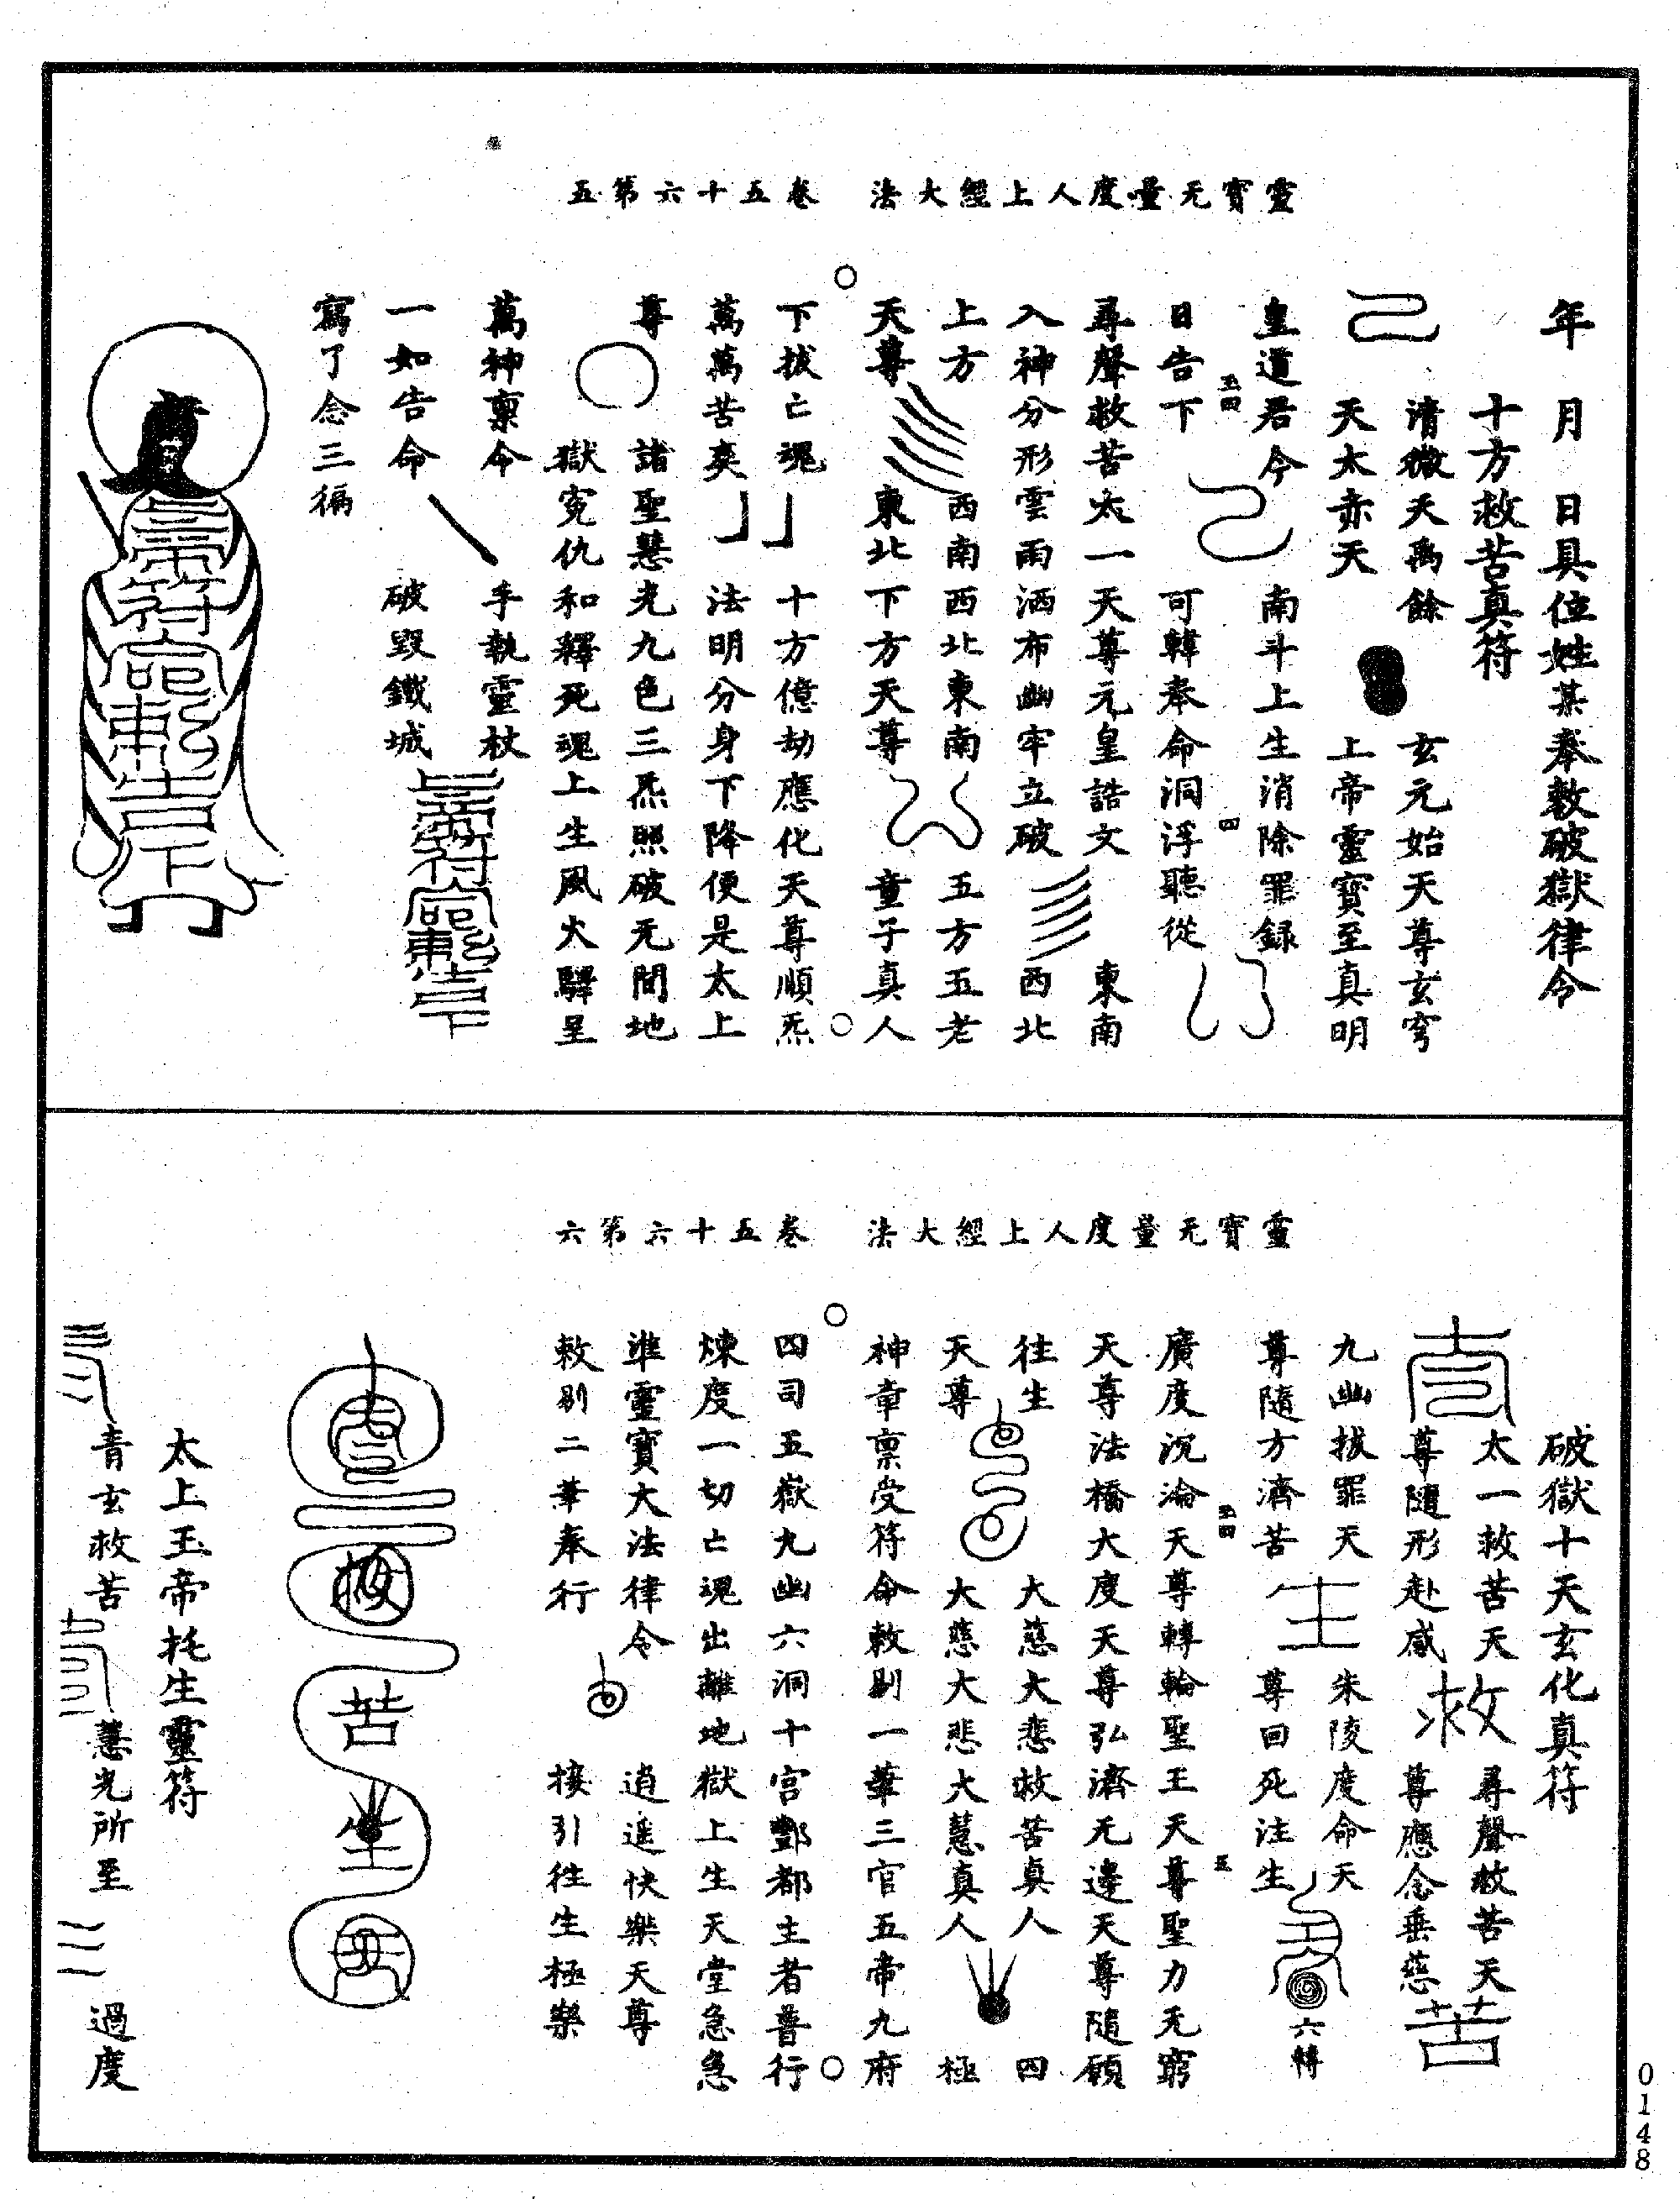 靈寶无量度人上經大法　卷五十六第五
年　月　日具位姓某奉敕破獄律令
十方救苦真符
清微天禹餘　玄元始天尊玄穹
天太赤天　上帝靈寶至真明
皇道君今　南斗上生消除罪録
五四　四
日告下　可韓奉命洞浮聽從
尋聲救苦太一天尊元皇誥文　東南
入神分形雲雨洒布幽牢立破　西北
上方　西南西北東南　五方五老
天尊　東北下方天尊　童子真人
下拔亡魂　十方億劫應化天尊順炁
萬萬苦爽　法明分身下降便是太上
尊　諸聖慧光九色三炁照破无間地
獄寃仇和釋死魂上生風火驛呈
萬神稟令　手執靈杖
一如告命　破毀鐵城
寫了念三徧
靈寶无量度人上經大法　卷五十六第六
破獄十天玄化真符
太一救苦天　尋聲救苦天
尊隨形赴感　救　尊應念垂慈　苦
九幽拔罪天　朱陵度命天
尊隨方濟苦　生　尊回死注生　六轉
五四　五
廣度沉淪天尊轉輪聖王天尊聖力无窮
天尊法橋大度天尊弘濟无邊天尊隨願
往生　大慈大悲救苦真人　四
天尊　大慈大悲大慧真人　極
神章稟受符命敕剔一葦三官五帝九府
四司五嶽九幽六洞十宮酆都主者普行
煉度一切亡魂出離地獄上生天堂急急
准靈寶大法律令　逍遥快樂天尊
敕剔二葦奉行　接引往生極樂
救　苦　生
太上玉帝托生靈符
青玄救苦　慧光所至　過度
0148